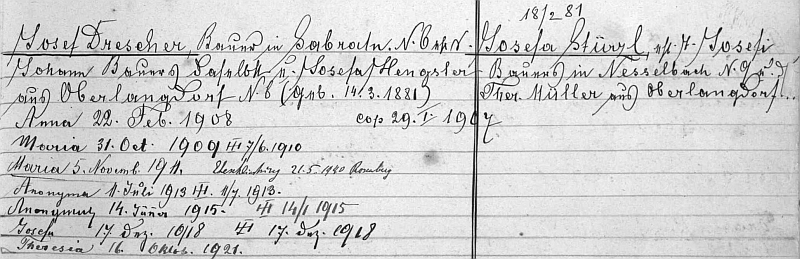 18/2 81
Josef Drescher, Bauer in Gabratn. N. 6 Josefa Stürzl, Josefi
Johann Bauers daselbst u. Josefa Hengster Bauers in Nesselbach N. 9 u. d
aus Oberlangdorf N. 6 (geb. 14.3.1881) Ther. Müller aus Oberlangdorf...
Anna 22. Feb. 1908 cop 29. I. 1907
Maria 31. Oct. 1909 7/6. 1910
Maria 5. Novemb. 1911. 21.5.1940
Anonyma 1. Juli 1913 1/7. 1913.
Anonymus 14. Jänner 1915. 14/1 1915
Josefa 17. Dez. 1918 17. Dez. 1918
Theresia 16. Oktob. 1921.